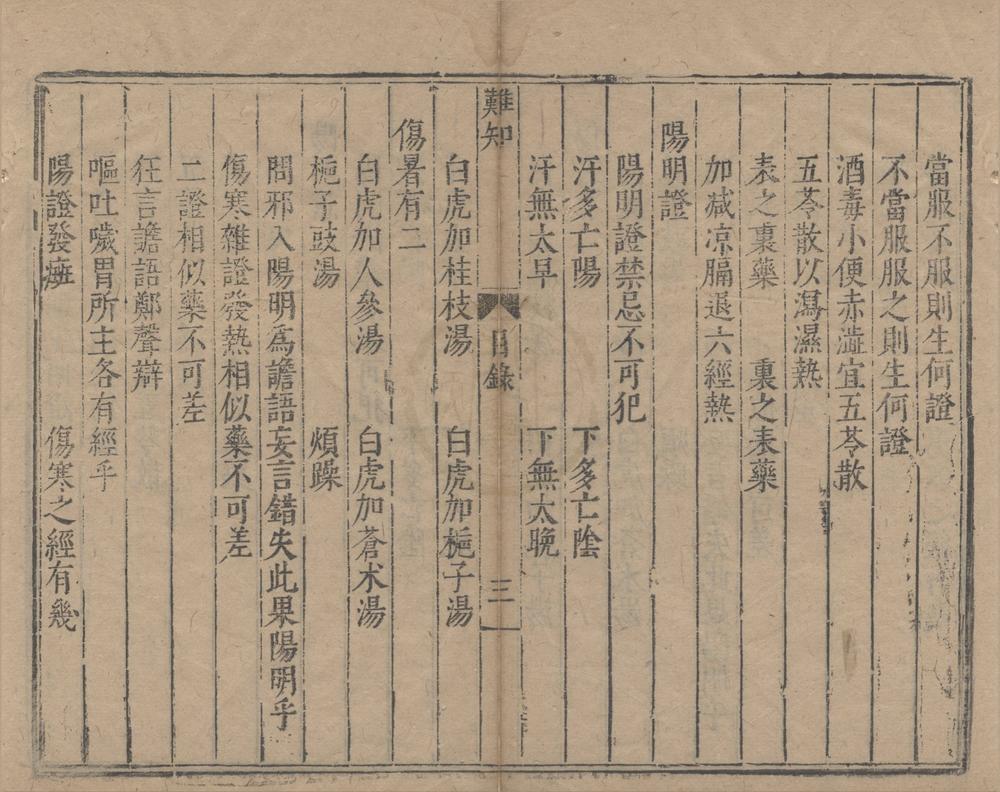 當服不服則生何證
不當服服之則生何證
酒毒小便赤澁宜五苓散
五苓散以瀉濕熱
表之裏藥　裏之表藥
加减凉膈退六經熱
陽明證
陽明證禁忌不可犯
汗多亡陽　下多亡陰
汗無太早　下無太晚
難知　目錄　三
白虎加桂枝湯　白虎加梔子湯
傷暑有二
白虎加人參湯　白虎加蒼术湯
梔子豉湯　煩躁
問邪入陽明爲譫語妄言錯失此果陽明乎
傷寒雜證發熱相似藥不可差
二證相似藥不可差
狂言譫語鄭聲辯
嘔吐噦胃所主各有經乎
陽證發斑　傷寒之經有幾